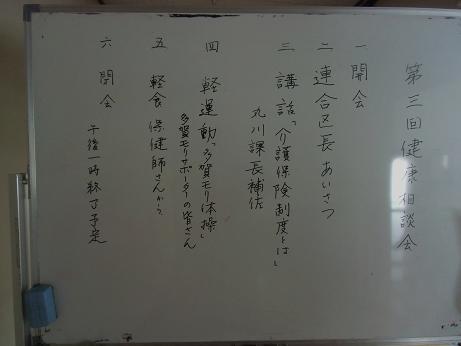 第三回健康相談会
一 開会
二 連合区長 あいさつ
三 講話「介護保険制度とは」
丸川課長補佐
四 軽運動「多賀モリ体操」
多賀モリサポーターの皆さん
五 軽食 保健師さんから
六 閉会 午後一時終了予定